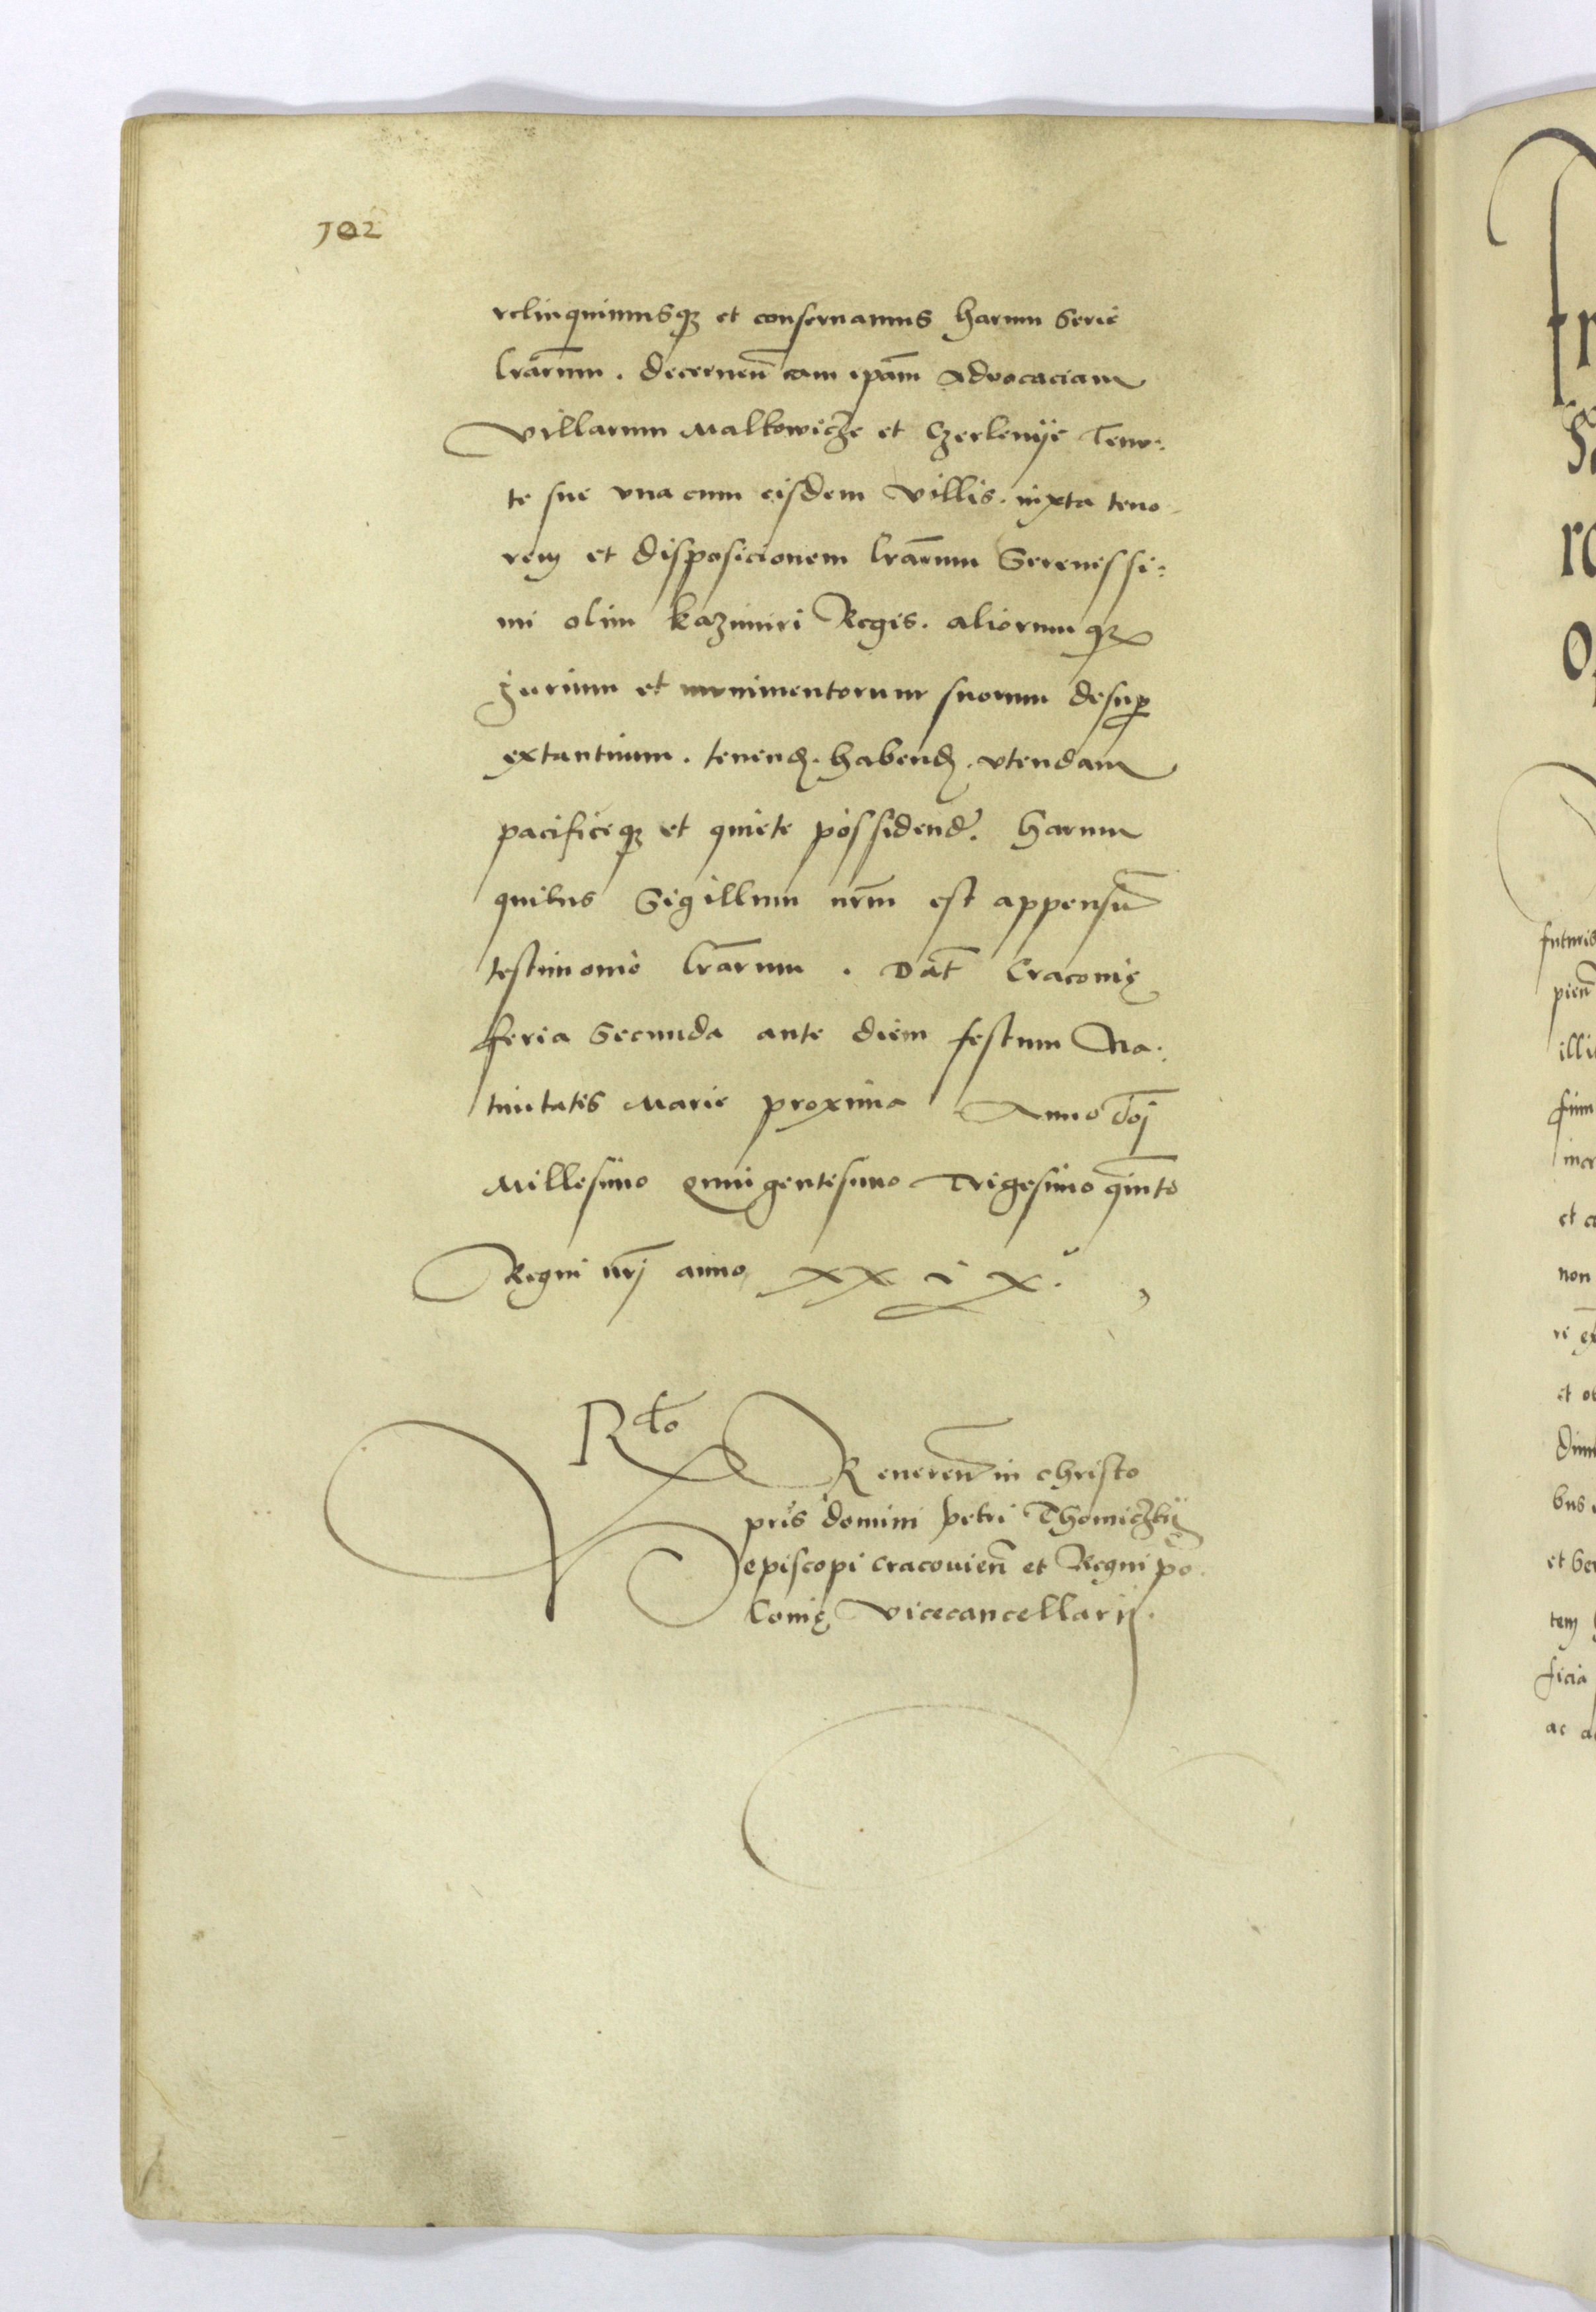 102
relinquimusq₃ et conseruamus harum Serie
lr̄arum . decernen̄ eam ip̄am Advocaciam
villarum Malkowicze et Czerlenije Tenu⸗
te sue vna cum eisdem villis . iuxta teno
rem et disposicionem lr̄arum Serenissi⸗
mi olim kazimiri Regis . aliorumq₃
jurium et munimentorum suorum desuꝑ
extantium . tenend̄ . habend̄ . vtendam
pacificeq₃ et quiete possidend̄ . harum
quibus Sigillum nr̄m est appensū
testimonio lr̄arum . Dat̄ Cracouię
feria Secunda ante diem festum Na⸗
tiuitatis Marie proxima Anno dnj̄
Millesimo Quingentesimo Trigesimo q̄into
Regni nr̄j anno xx i x .
Rᵗᵒ
Reueren̄ in christo
pr̄is domini petri Thomiczkij
episcopi cracouien̄ et Regni po
lonię vicecancellarij .
futuris
pien̄
illi
et
non
re
et
bus
et
tem
ficia
ac